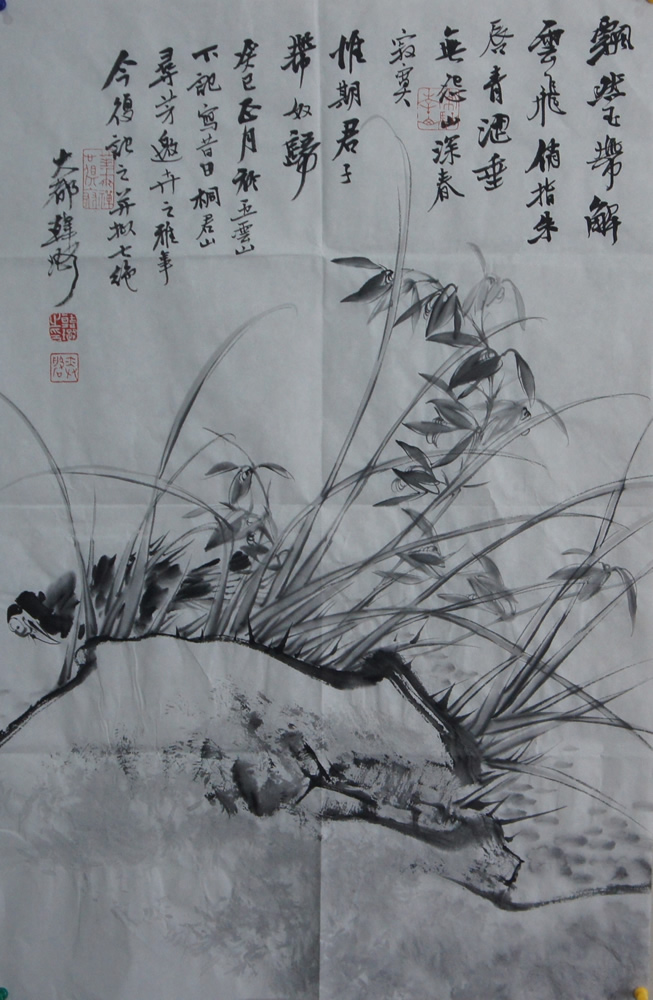 飄然玉帶解
雲飛俏指朱
唇青酒垂
無怨山深春
寂寞
惟期君子
帶奴歸
癸巳正月於五雲山
下記寫昔日桐君山
尋芳邀卉之雅事
今復記之并拟七絶
大都韓